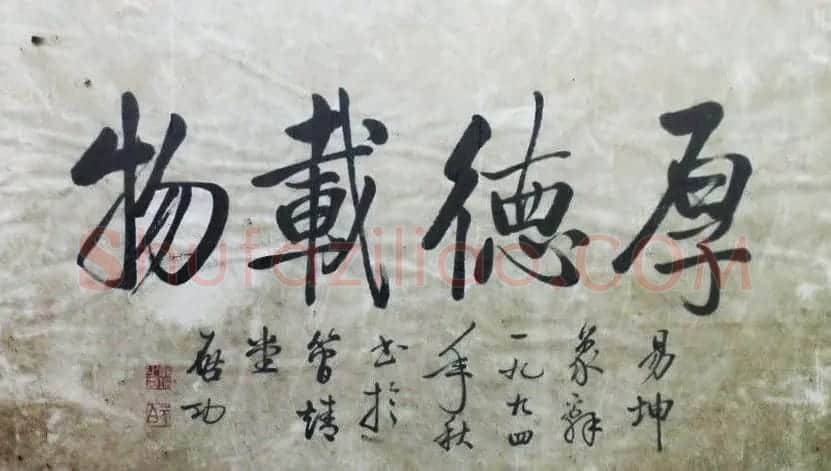 厚德載物
易坤
象辞
一九九四
年秋
书於
堂
启功
Shufaziliao.COM